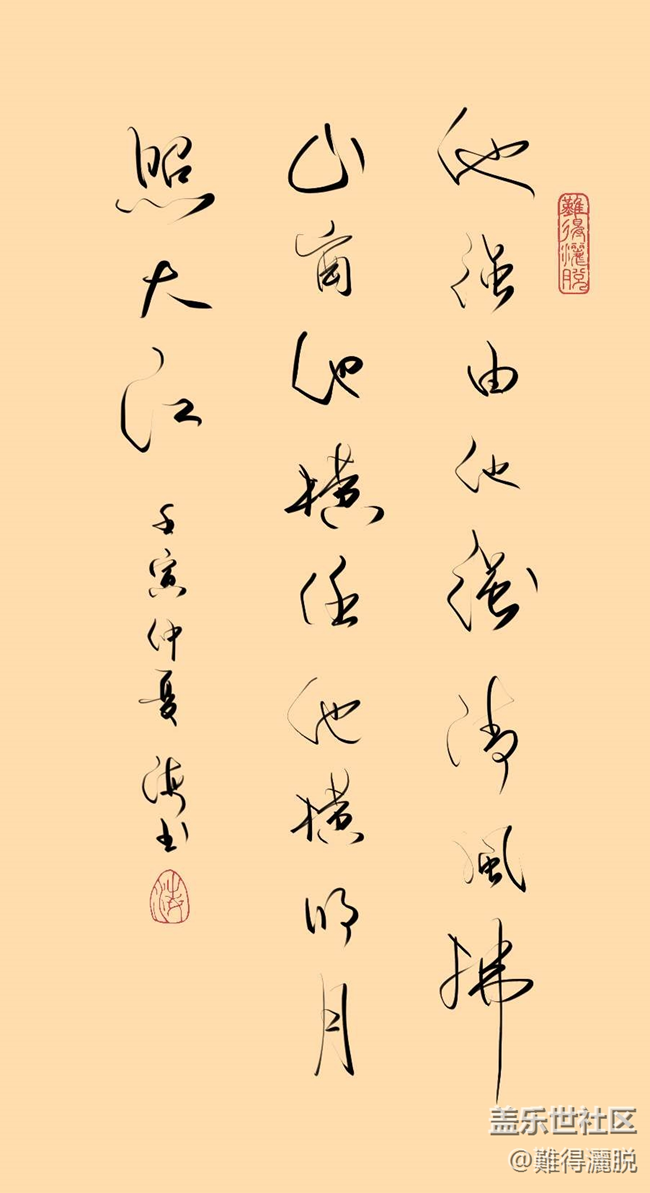 他强由他强清风拂
山岗他横任他横明月
照大江
壬寅仲夏 海书
難得灑脫
海
盖乐世社区
@難得灑脱